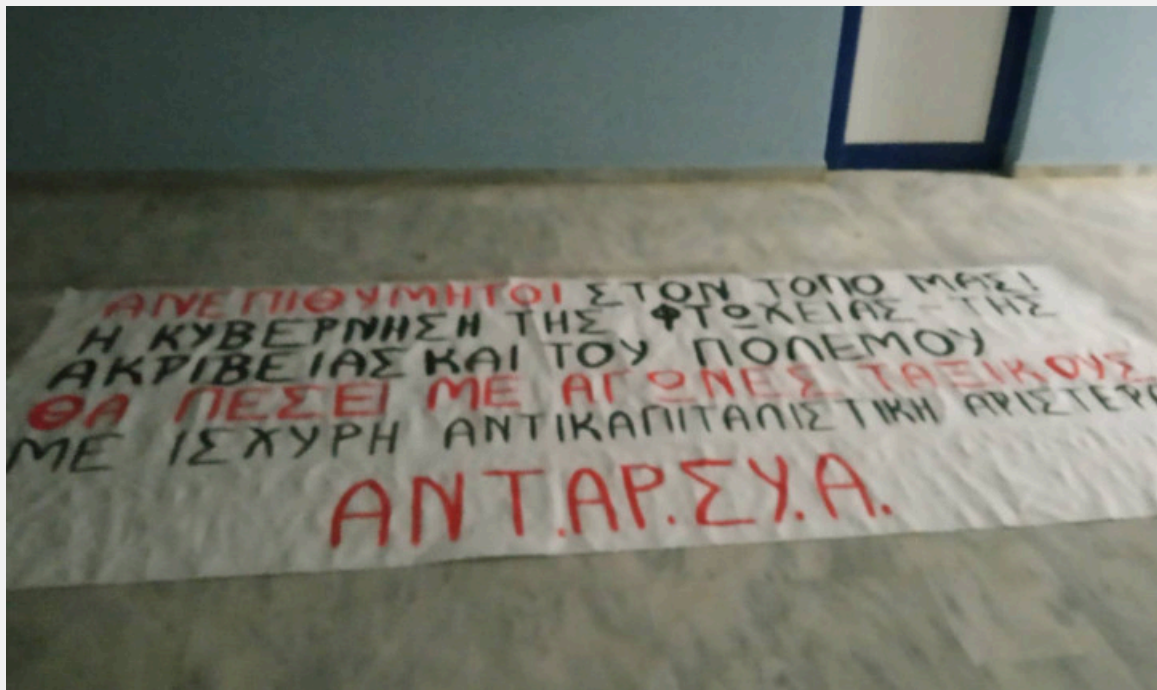 ΑΝΕΠΙΘΥΜΗΤΟΙ ΣΤΟΝ ΤΟΠΟ ΜΑΣ!
Η ΚΥΒΕΡΝΗΣΗ ΤΗΣ ΦΤΩΧΕΙΑΣ - ΤΗΣ
ΑΚΡΙΒΕΙΑΣ ΚΑΙ ΤΟΥ ΠΟΛΕΜΟΥ
ΘΑ ΠΕΣΕΙ ΜΕ ΑΓΩΝΕΣ ΤΑΞΙΚΟΥΣ
ΜΕ ΙΣΧΥΡΗ ΑΝΤΙΚΑΠΙΤΑΛΙΣΤΙΚΗ ΑΡΙΣΤΕΡΑ
ΑΝΤ.ΑΡ.ΣΥ.Α.